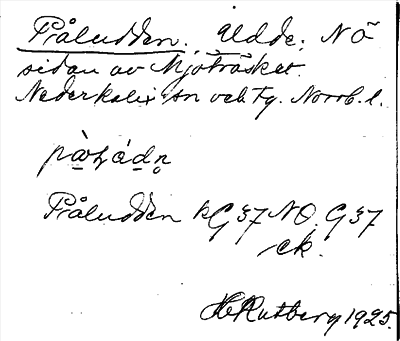 Påludden. Udde; NÖ
sidan av Mjöträsket.
Nederkalix sn och tg. Norrb. l.
Påludden kG 37 NO. G 37
ek.
HRutberg 1925.